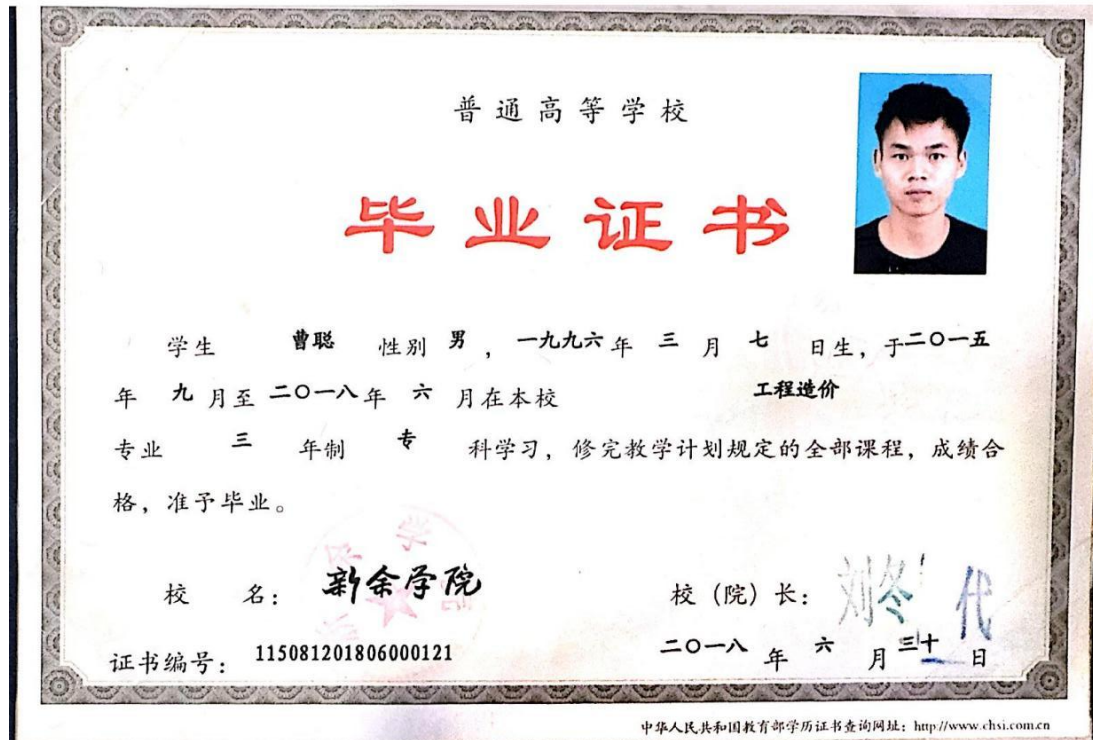 普通高等学校
毕业证书
学生 曹聪 性别 男 ， 一九九六 年 三 月 七 日生，于二〇一五
年 九 月至 二〇一八 年 六 月在本校 工程造价
专业 三 年制 专 科学习，修完教学计划规定的全部课程，成绩合
格，准予毕业。
校 名： 新余学院 校（院）长： 刘冬 代
证书编号： 115081201806000121 二〇一八 年 六 月 三十 日
中华人民共和国教育部学历证书查询网址：http://www.chsi.com.cn